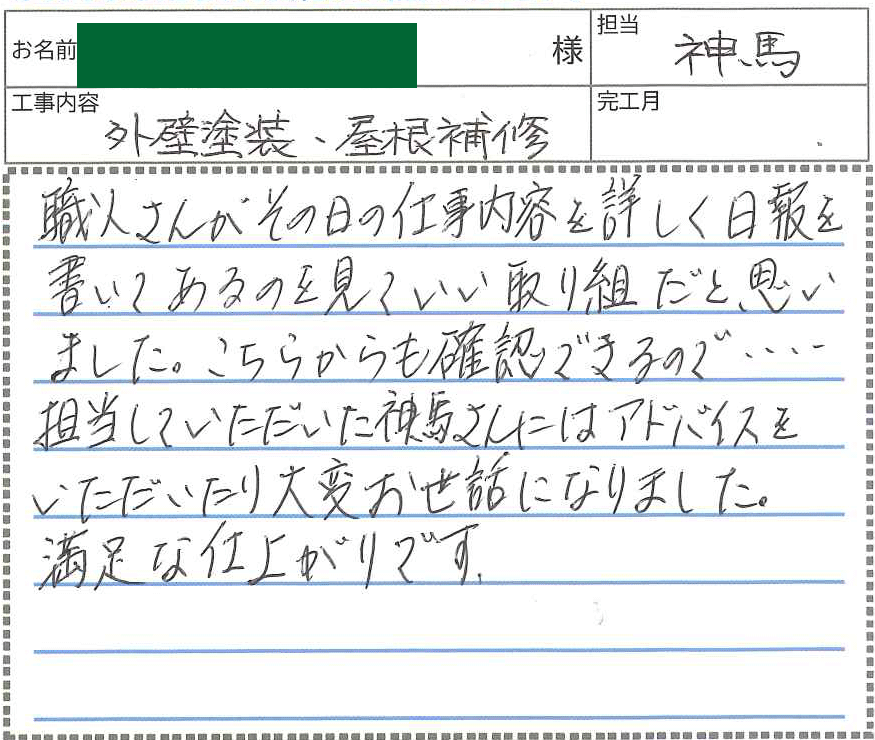 お名前 様 担当 神馬
工事内容 外壁塗装、屋根補修 完工月
職人さんがその日の仕事内容を詳しく日報を
書いてあるのを見ていい取り組だと思い
ました。こちらからも確認できるので・・・・
担当していただいた神馬さんにはアドバイスを
いただいたり大変お世話になりました。
満足な仕上がりです.